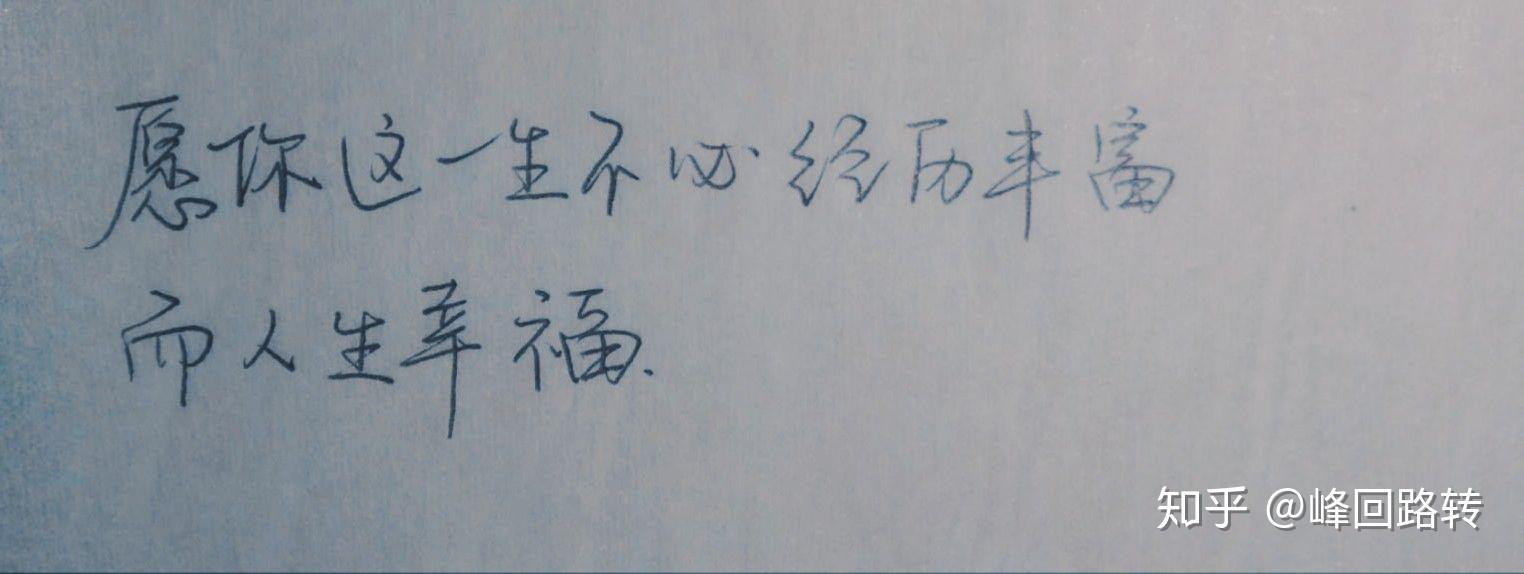 愿你这一生不必经历丰富
而人生幸福.
知乎 @峰回路转